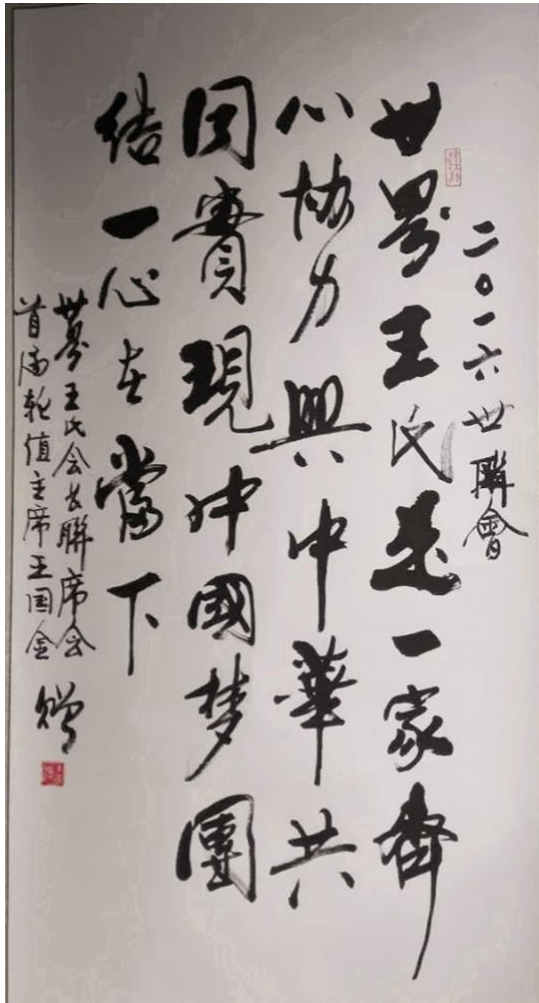 二〇一六世聯會
世界王氏是一家齊
心協力興中華共
同實現中國梦團
结一心在當下
世界王氏会长聯席会
首届轮值主席王国金
赠